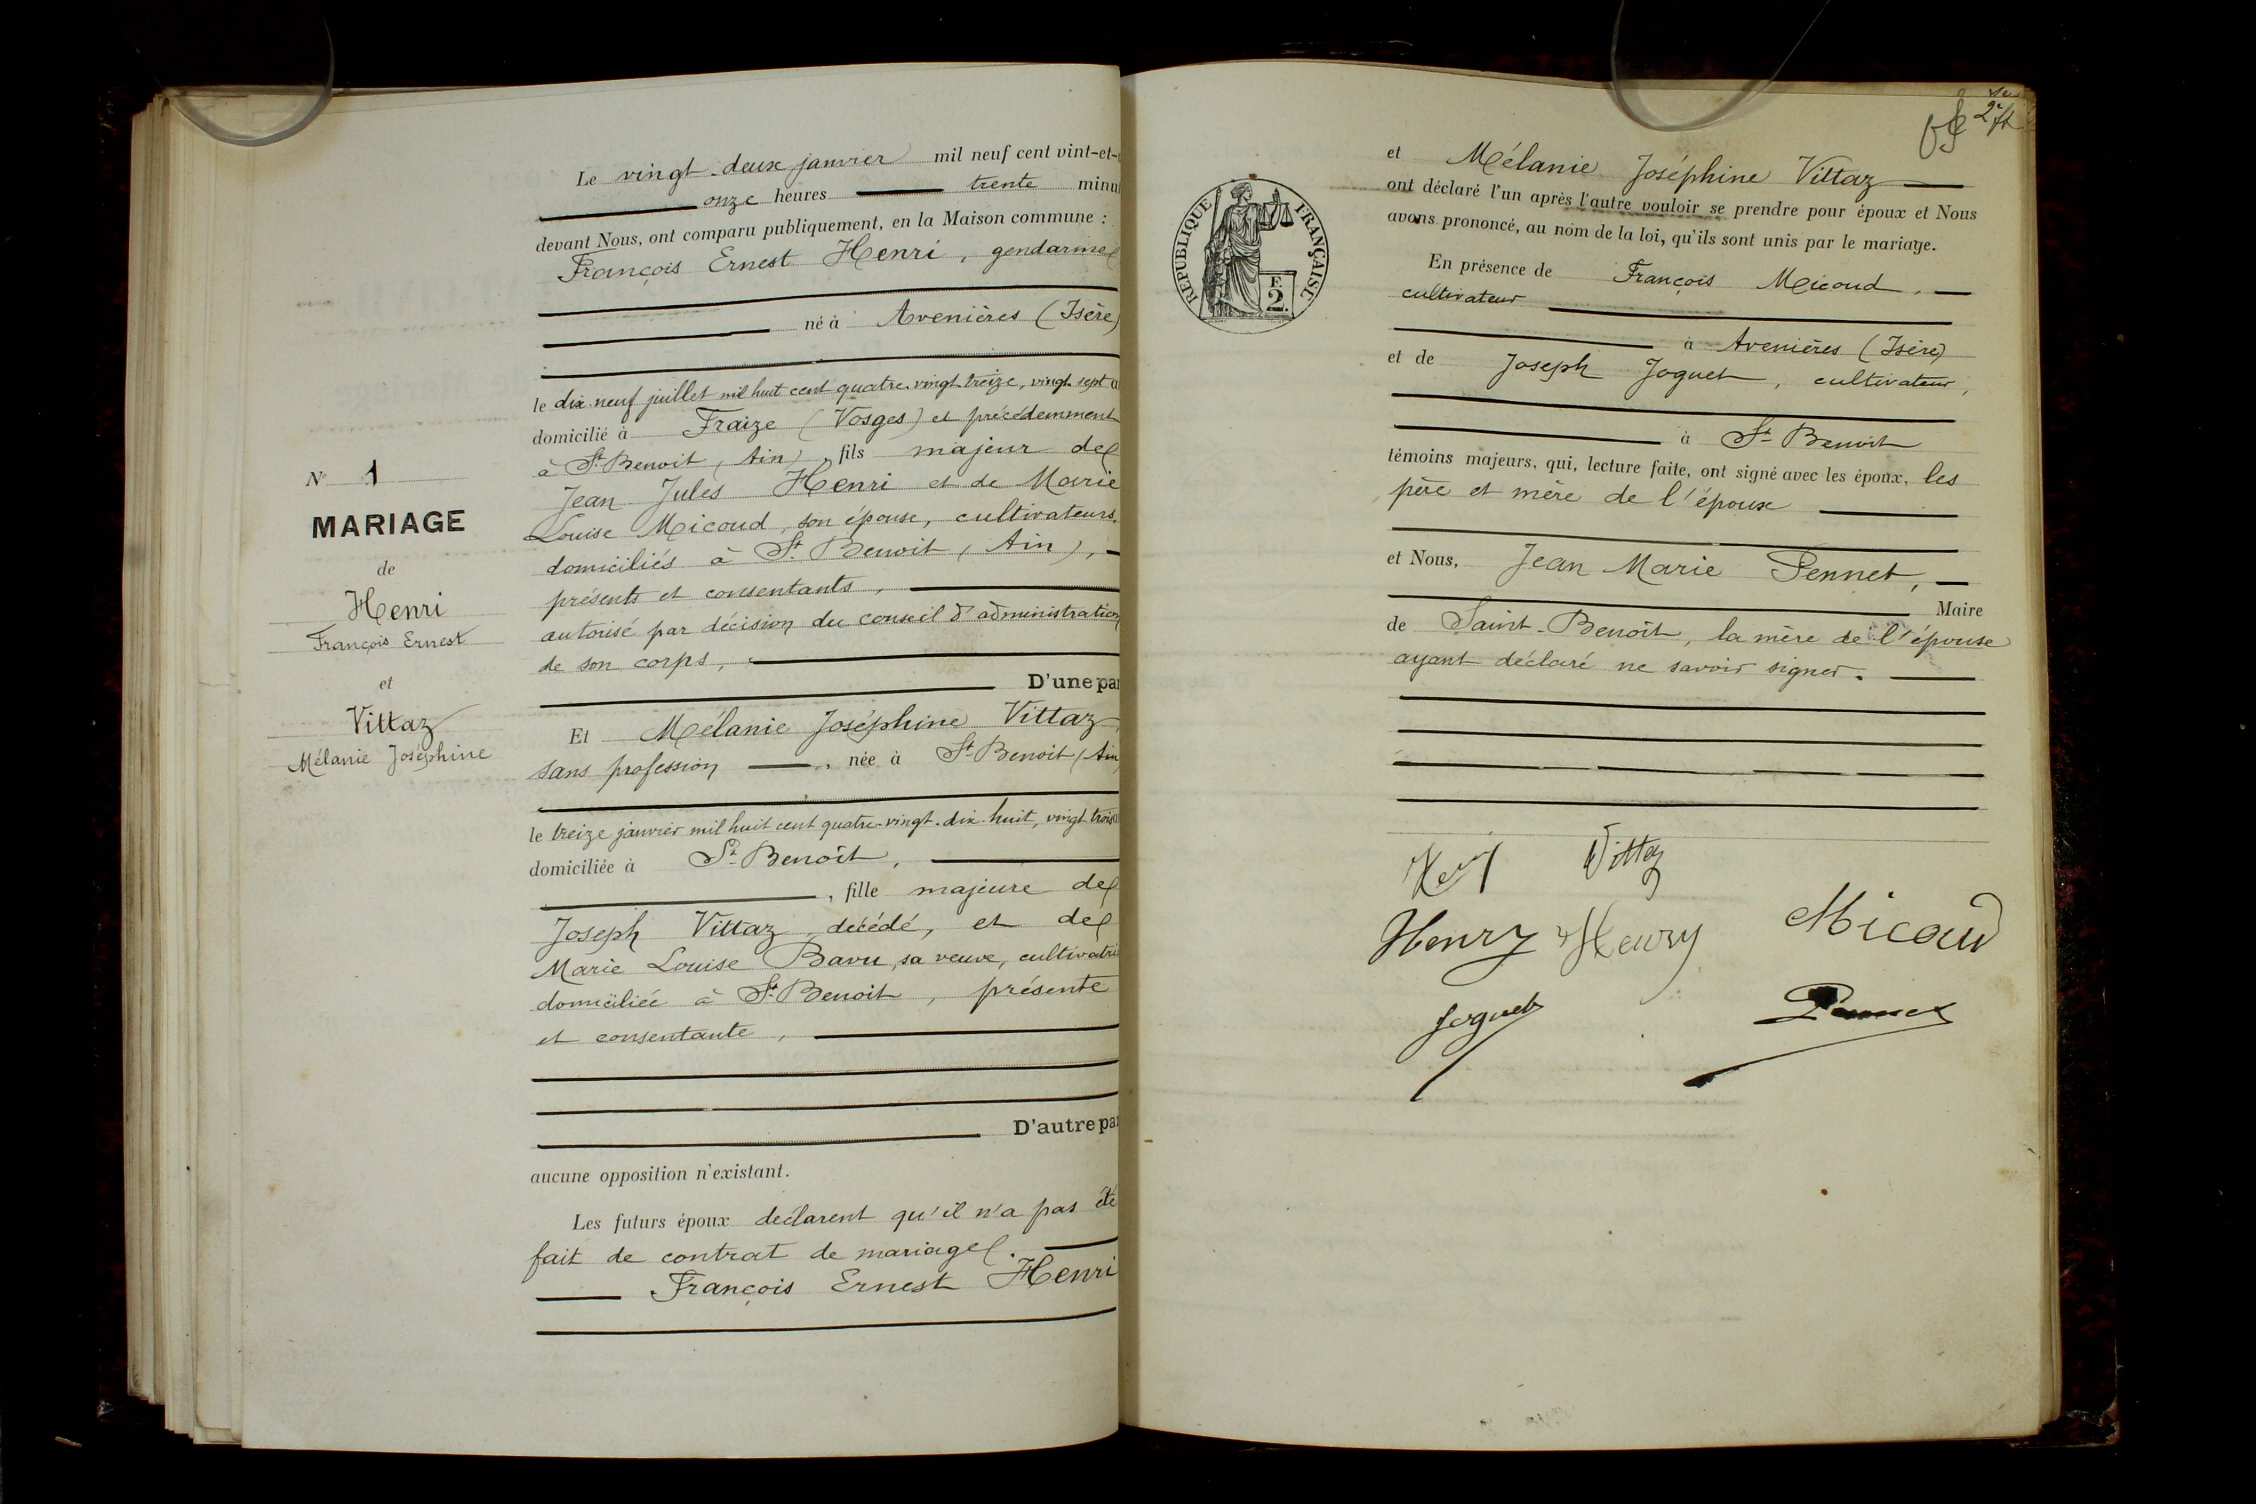 Le vingt-deux janvier mil neuf cent vint-et-
onze heures trente minu
devant Nous, ont comparu publiquement, en la Maison commune :
François Ernest Henri, gendarme
né à Avenières (Isère)
le dix-neuf juillet mil huit cent quatre-vingt-treize, vingt-sept a
domicilié à Fraize (Vosges) et précédemment
à St Benoit (Ain), fils majeur de
Jean Jules Henri et de Marie
Louise Micoud, son épouse, cultivateurs,
domiciliés à St Benoit (Ain),
présents et consentants,
autorisé par décision du conseil d'administration
de son corps,
D'une par
N° 1
MARIAGE
de
Henri
François Ernest
et
Vittaz
Mélanie Joséphine
Et Mélanie Joséphine Vittaz
sans profession, née à St Benoit (Ain)
le treize janvier mil huit cent quatre-vingt-dix-huit, vingt-trois
domiciliée à St Benoît,
, fille majeure de
Joseph Vittaz, décédé, et de
Marie Louise Bavu, sa veuve, cultivatri
domiciliée à St Benoit, présente
et consentante,
D'autre par
aucune opposition n'existant.
Les futurs époux déclarent qu'il n'a pas été
fait de contrat de mariage.
François Ernest Henri
2e ft
et Mélanie Joséphine Vittaz
ont déclaré l'un après l'autre vouloir se prendre pour époux et Nous
avons prononcé, au nom de la loi, qu'ils sont unis par le mariage.
RÉPUBLIQUE FRANÇAISE
F.
2.
En présence de François Micoud,
cultivateur
à Avenières (Isère)
et de Joseph Joguet, cultivateur,
à St Benoit
témoins majeurs, qui, lecture faite, ont signé avec les époux, les
père et mère de l'époux
et Nous, Jean Marie Pennet,
Maire
de Saint-Benoît, la mère de l'épouse
ayant déclaré ne savoir signer.
Henri Vittaz
Henry Henry Micoud
Joguet Pennet